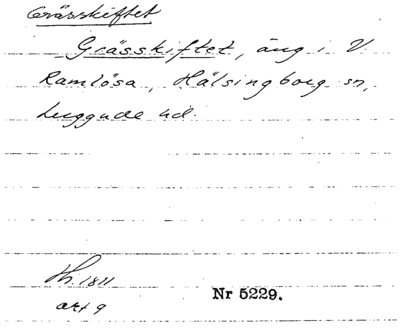 Grässkiftet
Grässkiftet, äng i V.
Ramlösa, Hälsingborg sn,
Luggude hd.
Th. 1811
akt 9
Nr 5229.